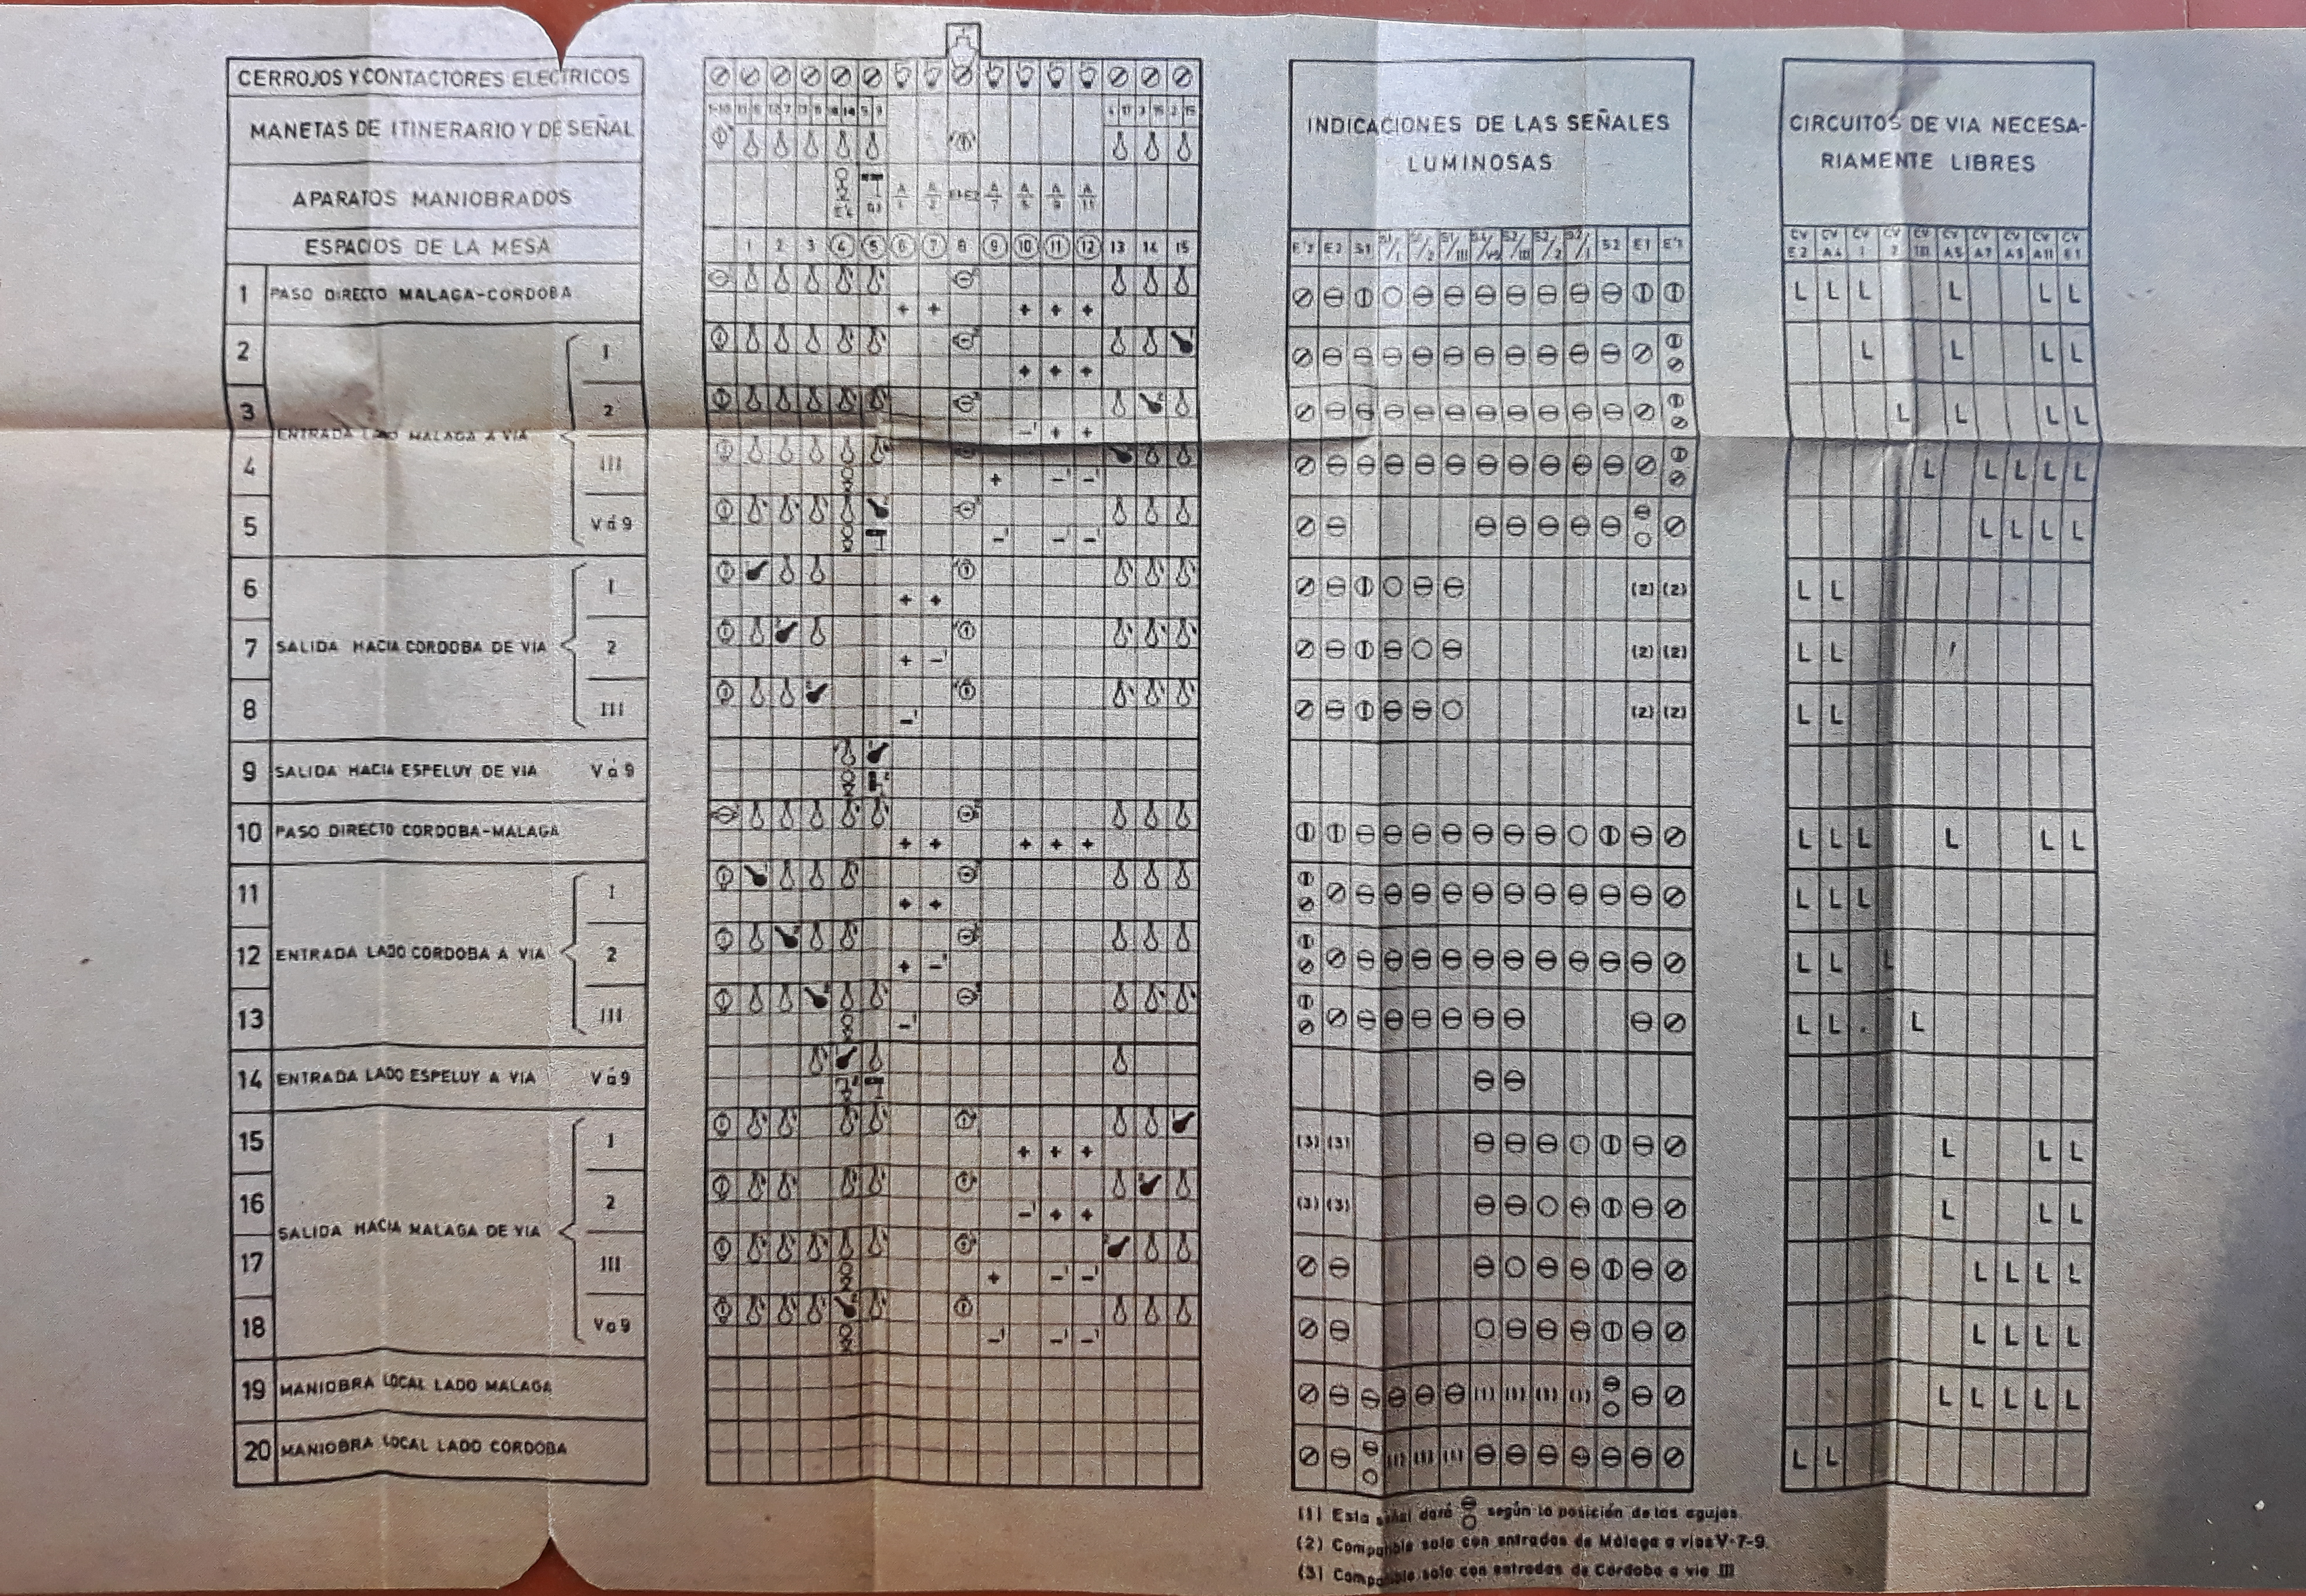 CERROJOS Y CONTACTORES ELECTRICOS
MANETAS DE ITINERARIO Y DE SEÑAL
APARATOS MANIOBRADOS
ESPACIOS DE LA MESA
1 2 3 4 5 6 7 8 9 10 11 12 13 14 15
INDICACIONES DE LAS SEÑALES
LUMINOSAS
E'2 E2 S1 S1/1 S1/2 S1/III S2/III S2/2 S2/1 S2 E1 E'1
CIRCUITOS DE VIA NECESA-
RIAMENTE LIBRES
CV CV CV CV CV CV CV CV CV CV
E2 A4 1 2 III A5 A7 A9 A11 E1
1 PASO DIRECTO MALAGA-CORDOBA
+ + + + +
L L L L L L
2 I
+ + +
L L L L
3 2
-' + +
L L L L
ENTRADA LADO MALAGA A VIA
4 III
+ -' -'
L L L L L
5 V á 9
-' -' -'
L L L L
6 I
+ +
(2) (2)
L L
7 SALIDA HACIA CORDOBA DE VIA 2
+ -'
(2) (2)
L L
8 III
-'
(2) (2)
L L
9 SALIDA HACIA ESPELUY DE VIA V á 9
10 PASO DIRECTO CORDOBA-MALAGA
+ + + + +
L L L L L L
11 I
+ +
L L L
12 ENTRADA LADO CORDOBA A VIA 2
+ -'
L L L
13 III
-'
L L L
14 ENTRADA LADO ESPELUY A VIA V á 9
15 I
+ + +
(3) (3)
L L L
16 2
-' + +
(3) (3)
L L L
SALIDA HACIA MALAGA DE VIA
17 III
+ -' -'
L L L L
18 V a 9
-' -' -'
L L L L
19 MANIOBRA LOCAL LADO MALAGA
(1) (1) (1) (1)
L L L L L
20 MANIOBRA LOCAL LADO CORDOBA
(1) (1) (1)
L L
(1) Esta señal dará según la posición de las agujas.
(2) Compatible solo con entradas de Málaga a vias V-7-9.
(3) Compatible solo con entradas de Córdoba a via III